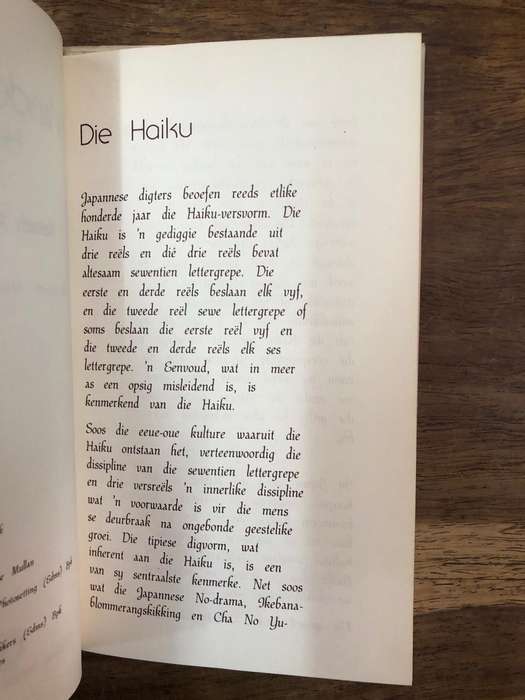 Die Haiku
Japannese digters beoefen reeds etlike
honderde jaar die Haiku-versvorm. Die
Haiku is 'n gediggie bestaande uit
drie reëls en dié drie reëls bevat
altesaam sewentien lettergrepe. Die
eerste en derde reëls beslaan elk vyf,
en die tweede reël sewe lettergrepe of
soms beslaan die eerste reël vyf en
die tweede en derde reëls elk ses
lettergrepe. 'n Eenvoud, wat in meer
as een opsig misleidend is, is
kenmerkend van die Haiku.
Soos die eeue-oue kulture waaruit die
Haiku ontstaan het, verteenwoordig die
dissipline van die sewentien lettergrepe
en drie versreëls 'n innerlike dissipline
wat 'n voorwaarde is vir die mens
se deurbraak na ongebonde geestelike
groei. Die tipiese digvorm, wat
inherent aan die Haiku is, is een
van sy sentraalste kenmerke. Net soos
wat die Japannese No-drama, Ikebana-
blommerangskikking en Cha No Yu-
Mullan
(Edms) Bpk
(Edms) Bpk